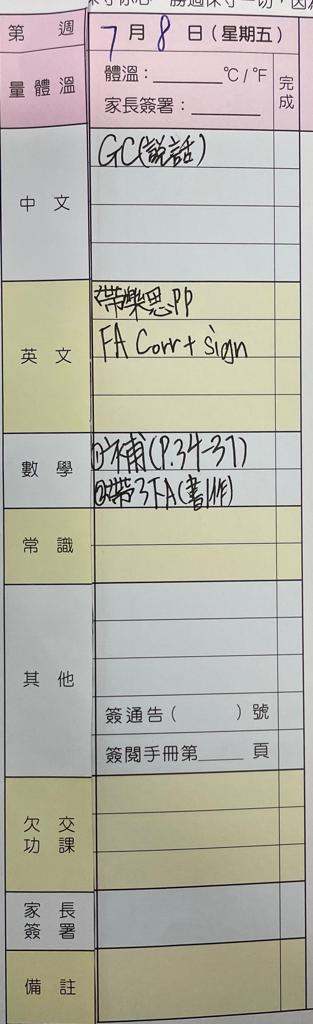 第 週 7 月 8 日 (星期五)
量體溫 體溫：______°C/°F
家長簽署：______
完成
中文 GC(說話)
英文 帶樂思PP
FA Corr + sign
數學 ①補(P.34-37)
②帶3下A(書作)
常識
其他
簽通告( )號
簽閱手冊第____頁
欠交功課
家長簽署
備註